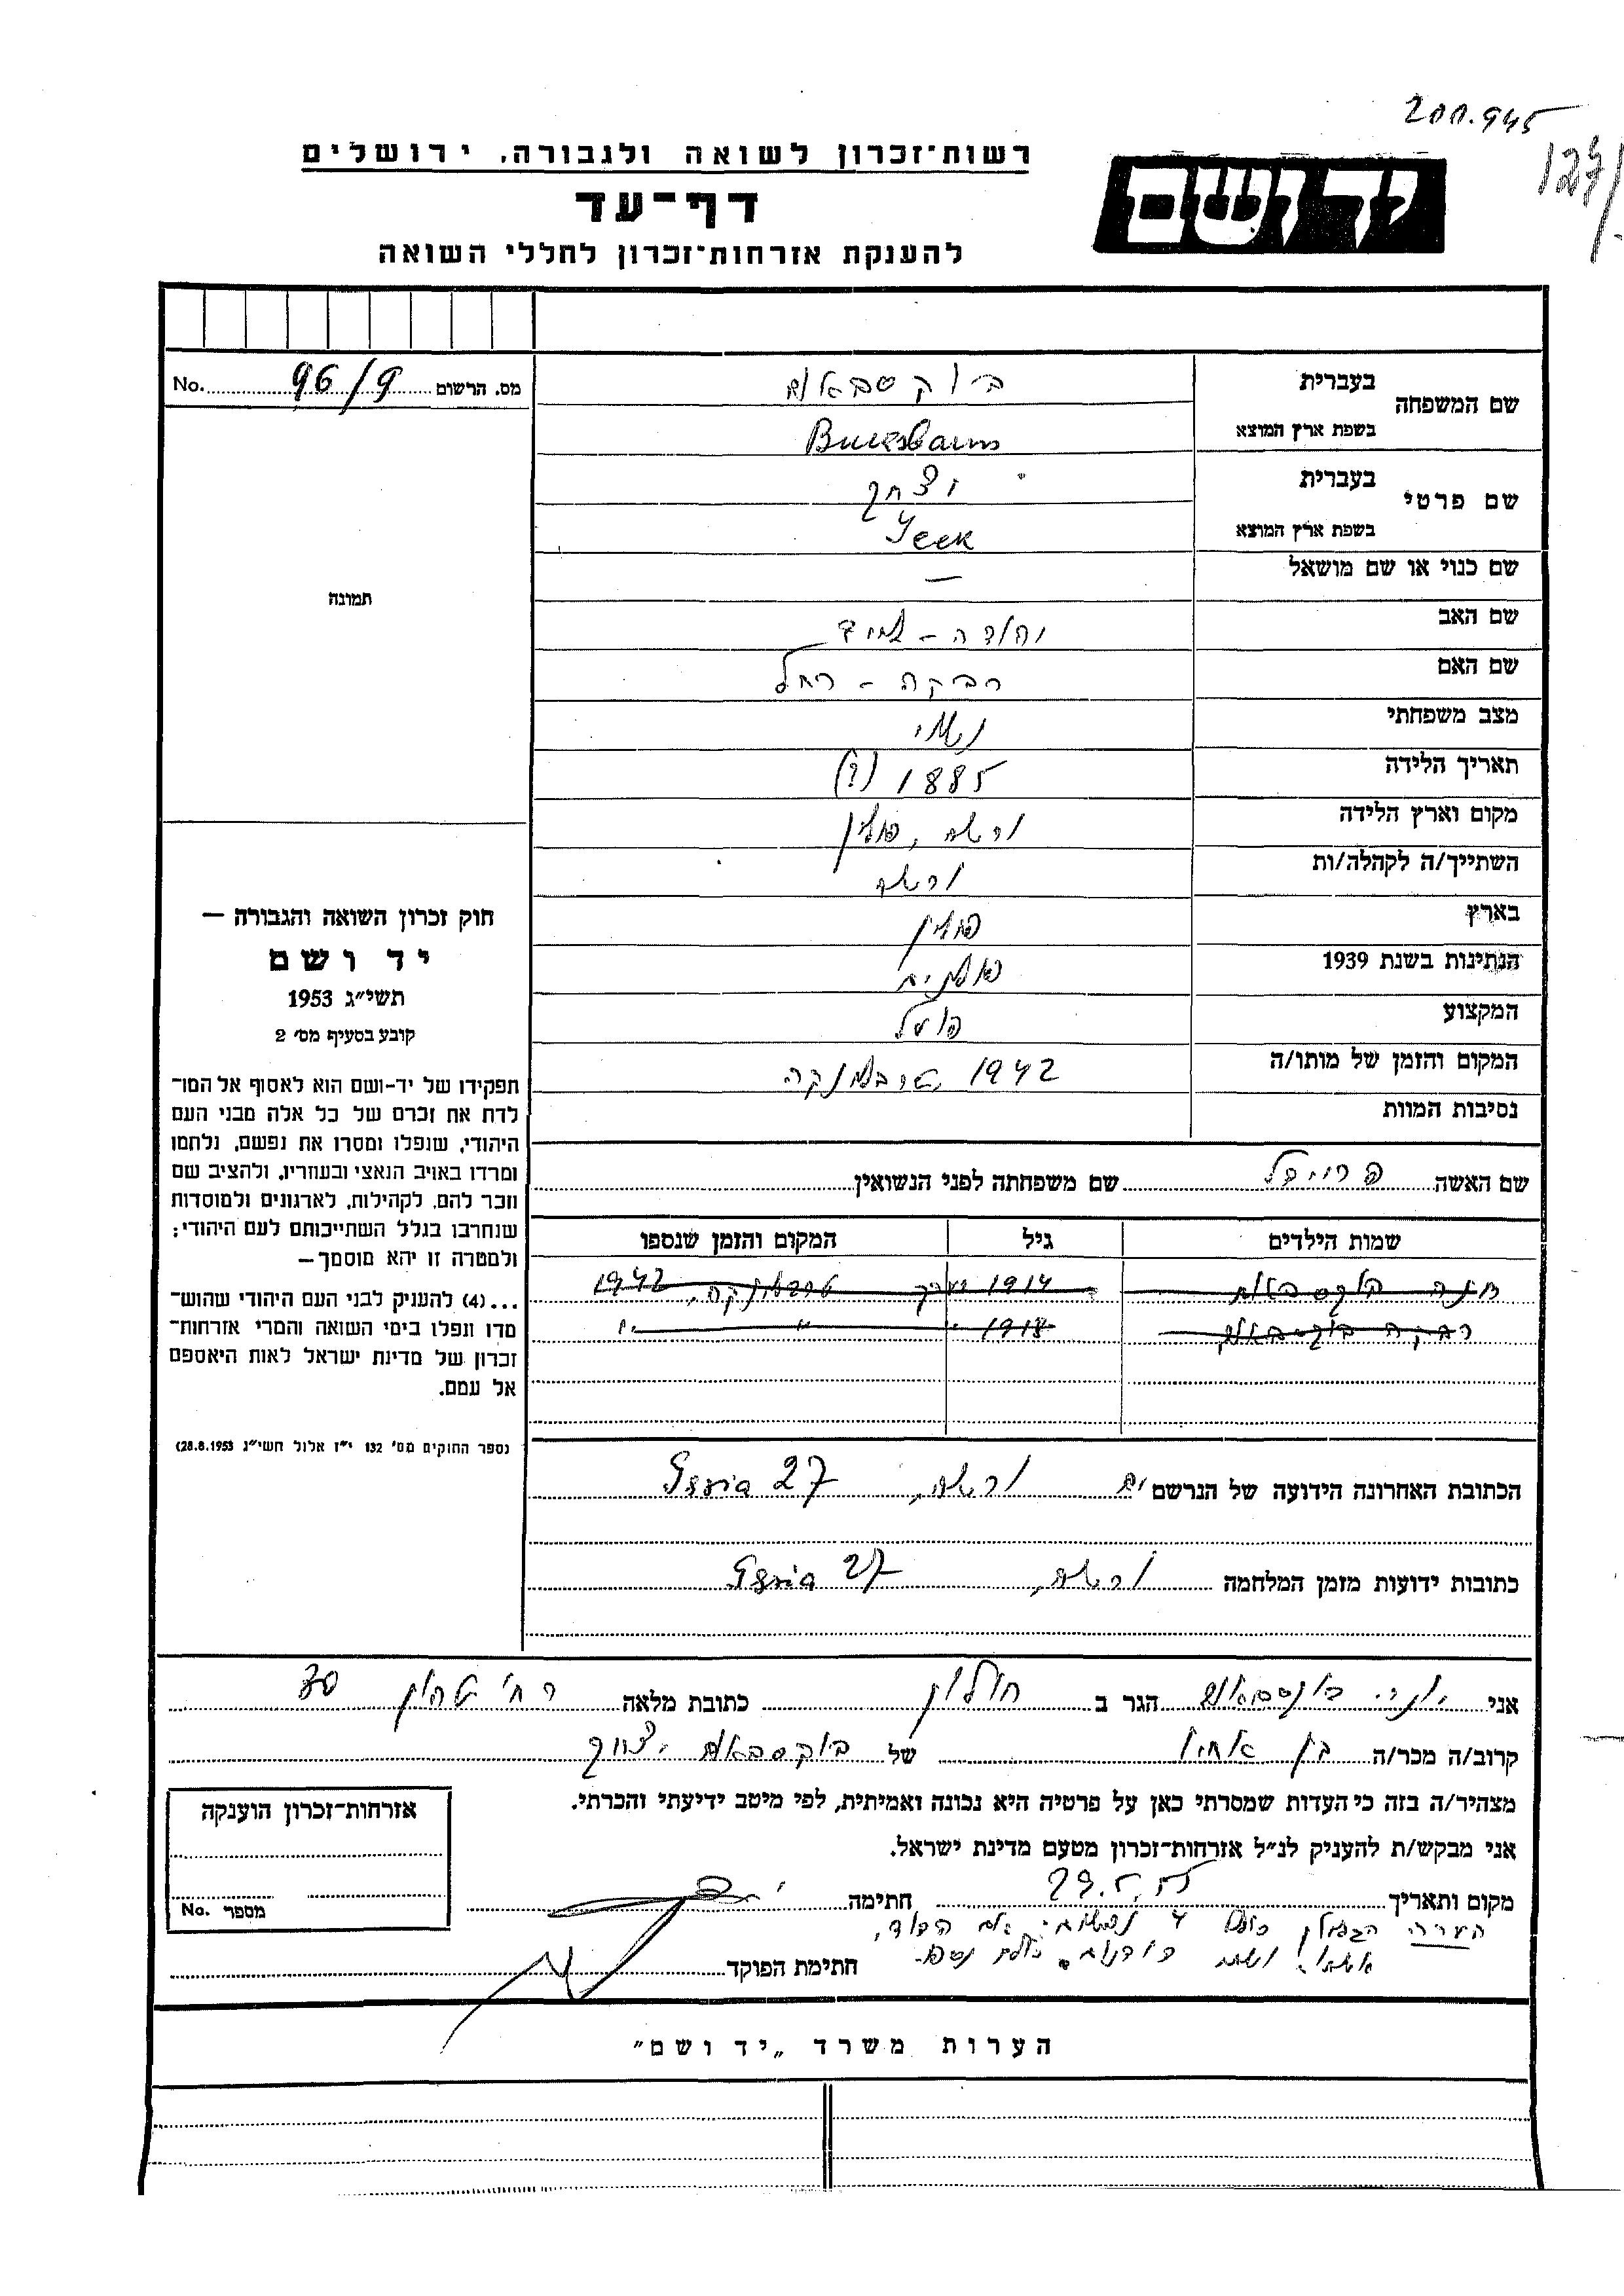 200.945
127/
יד ושם
רשות־זכרון לשואה ולגבורה, ירושלים
דף־עד
להענקת אזרחות־זכרון לחללי השואה
מס. הרשום 96/9 No.
שם המשפחה
בעברית בוקשבאום
בשפת ארץ המוצא Bucksbaum
שם פרטי
בעברית יצחק
בשפת ארץ המוצא Icek
שם כנוי או שם מושאל —
שם האב יהודה -
שם האם רבקה - רחל
מצב משפחתי נשוי
תאריך הלידה 1885 (?)
מקום וארץ הלידה ורשה, פולין
השתייך/ה לקהלה/ות ורשה
בארץ פולין
הנתינות בשנת 1939 פולנית
המקצוע פועל
המקום והזמן של מותו/ה 1942 טרבלינקה
נסיבות המוות
שם האשה פרויבל שם משפחתה לפני הנשואין
שמות הילדים גיל המקום והזמן שנספו
חנה בוקסבאום 1914 בערך טרבלינקה, 1942
רבקה בוקסבאום 1918 " "
הכתובת האחרונה הידועה של הנרשם ורשה, Gęsia 27
כתובות ידועות מזמן המלחמה ורשה, Gęsia 27
תמונה
חוק זכרון השואה והגבורה —
יד ושם
תשי״ג 1953
קובע בסעיף מס׳ 2
תפקידו של יד-ושם הוא לאסוף אל המו־
לדת את זכרם של כל אלה מבני העם
היהודי, שנפלו ומסרו את נפשם, נלחמו
ומרדו באויב הנאצי ובעוזריו, ולהציב שם
וזכר להם, לקהילות, לארגונים ולמוסדות
שנחרבו בגלל השתייכותם לעם היהודי;
ולמטרה זו יהא מוסמך—
...(4) להעניק לבני העם היהודי שהוש־
מדו ונפלו בימי השואה והמרי אזרחות־
זכרון של מדינת ישראל לאות היאספם
אל עמם.
(ספר החוקים מס׳ 132 י״ז אלול תשי״ג 28.8.1953)
אני בוקסבאום הגר ב חולון כתובת מלאה רח׳ 30
קרוב/ה מכר/ה בן אחיו של בוקסבאום יצחק
מצהיר/ה בזה כי העדות שמסרתי כאן על פרטיה היא נכונה ואמיתית, לפי מיטב ידיעתי והכרתי.
אני מבקש/ת להעניק לנ״ל אזרחות־זכרון מטעם מדינת ישראל.
מקום ותאריך 29.5.55 חתימה
הערה 4
חתימת הפוקד
אזרחות־זכרון הוענקה
מספר No.
הערות משרד „יד ושם״